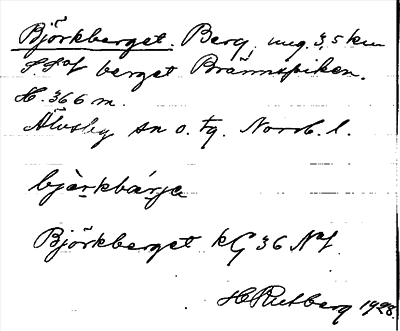 Björkberget. Berg, ung. 3,5 km
S.S.of berget Brännspiken.
H. 366 m.
Älvsby sn o. tg. Norrb. l.
bjàrkbárja
Björkberget kG 36 Nof
H Rutberg 1928.